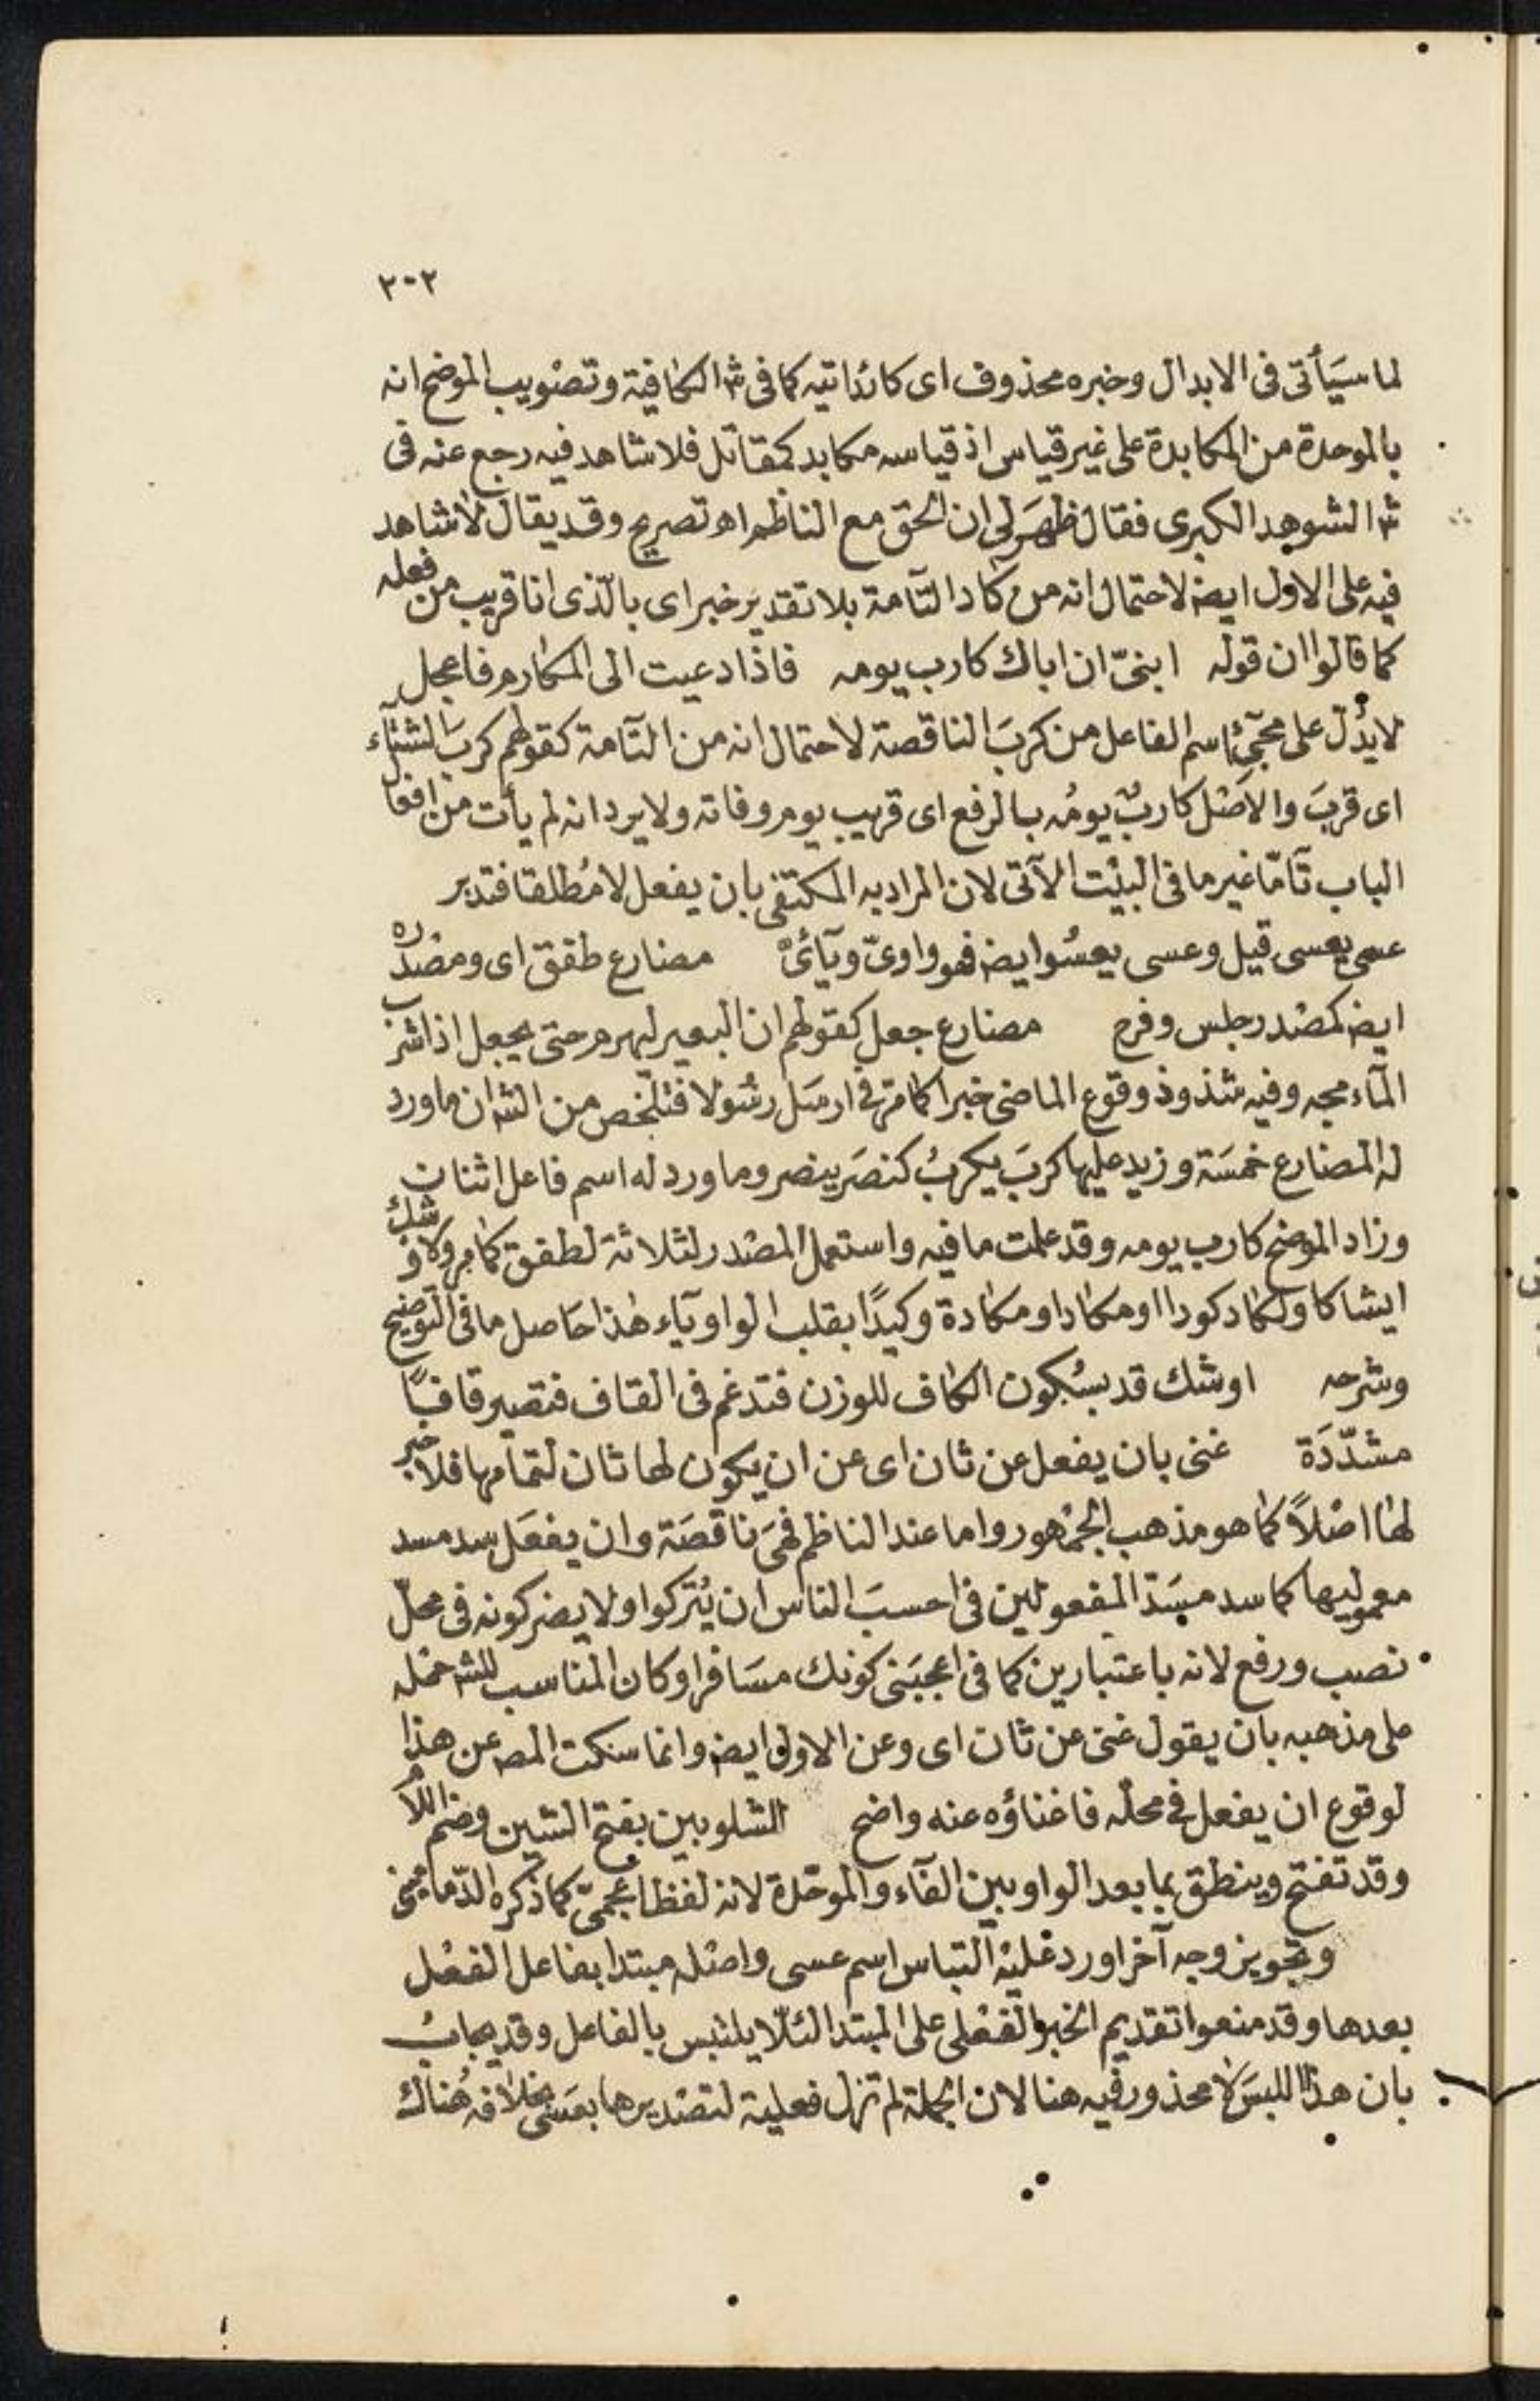 ٢٠٢
لما سيَأتى فى الابدال وخبره محذوف اى كائدا تيه كما فى شـ الكافية وتصْويب الموضح انه
بالموحدة من المكابدة على غير قياس اذ قياسه مكابد كمقاتل فلا شاهد فيه رجع عنه فى
شـ الشوهد الكبرى فقال ظهَر لى ان الحق مع الناظم اهـ تصريح وقد يقال لا شاهد
فيه على الاول ايضا لاحتمال انه من كاد التآمة بلا تقدير خبر اى بالّذى انا قريب من فعله
كما قالوا ان قوله ابنىّ ان اباك كارب يومه فاذا دعيت الى المكارم فاعجل
لا يدُلّ على مجئ اسم الفاعل من كربَ الناقصة لاحتمال انه من التآمة كقولهم كربَ الشتآء
اى قربَ والاصْل كاربٌ يومُه بالرفع اى قريب يوم وفاته ولا يرد انه لم يأت من افعا
الباب تآمّا غير ما فى البيْت الآتى لان المراد به المكتفى بان يفعل لا مُطلقا فتدبر
عسى يعسى قيل وعسى يعسُو ايضـ فهو واوىّ ويآئىّ مضارع طفق اى ومصْدره
ايضـ كمصْدر جلس وفرح مضارع جعل كقولهم ان البعير ليهرم حتى يجعل اذا شرب
المآء مجه وفيه شذوذ وقوع الماضى خبرا كما مرّ فى ارسَل رسُولا فتلخّص من الشـ ان ما ورد
له المضارع خمسَة وزيد عليها كربَ يكربُ كنصَر ينصر وما ورد له اسم فاعل اثنان
وزاد الموضح كارب يومه وقد علمت ما فيه واستعمل المصْدر لثلاثة لطفق كما مر ولاوشك
ايشاكا ولكاد كودا او مكادا او مكادة وكيدًا بقلب الواو يآء هذا حَاصل ما فى التوضيح
وشرحه اوشك قد بسُكون الكاف للوزن فتدغم فى القاف فتصير قافًا
مشدّدَة غنى بان يفعل عن ثان اى عن ان يكون لها ثان لتمامها فلا خبر
لها اصْلاً كما هو مذهب الجمْهور واما عند الناظم فهىَ ناقصَة وان يفعَل سد مسد
معموليها كما سد مسَدّ المفعولين فى احسبَ الناس ان يُتركوا ولا يضر كونه فى محلّ
نصب ورفع لانه باعتبارين كما فى اعجبَنى كونك مسَافرا وكان المناسب للشـ حمْله
على مذهبه بان يقول غنى عن ثان اى وعن الاول ايضـ وانما سكت المصـ عن هذا
لوقوع ان يفعل فى محلّه فاغناؤه عنه واضح الشلوبين بفتح الشين وضم اللام
وقد تفتح وينطق بما بعد الواو بين الفآء والموحّدة لانه لفظ اعجمىّ كما ذكره الدّمامينى
وتجويز وجه آخر اورد عليْه التباس اسم عسى واصْله مبتدا بفاعل الفعْل
بعدها وقد منعوا تقديم الخبر الفعْلى على المبتدا لئلّا يلتبس بالفاعل وقد يجابُ
بان هذا اللبسَ لا محذور فيه هنا لان الجملة لم تزل فعلية لتصْديرها بعسَى بخلافه هُناك